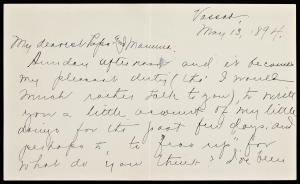 Vassar,
May 13, 1894.
My dearest Papa & Mamma.
Sunday afternoon and it becomes
my pleasant duty (tho' I would
much rather talk to you), to write
you a little account of my little
doings for the past few days, and
perhaps to, up" for
what do you think? I've been